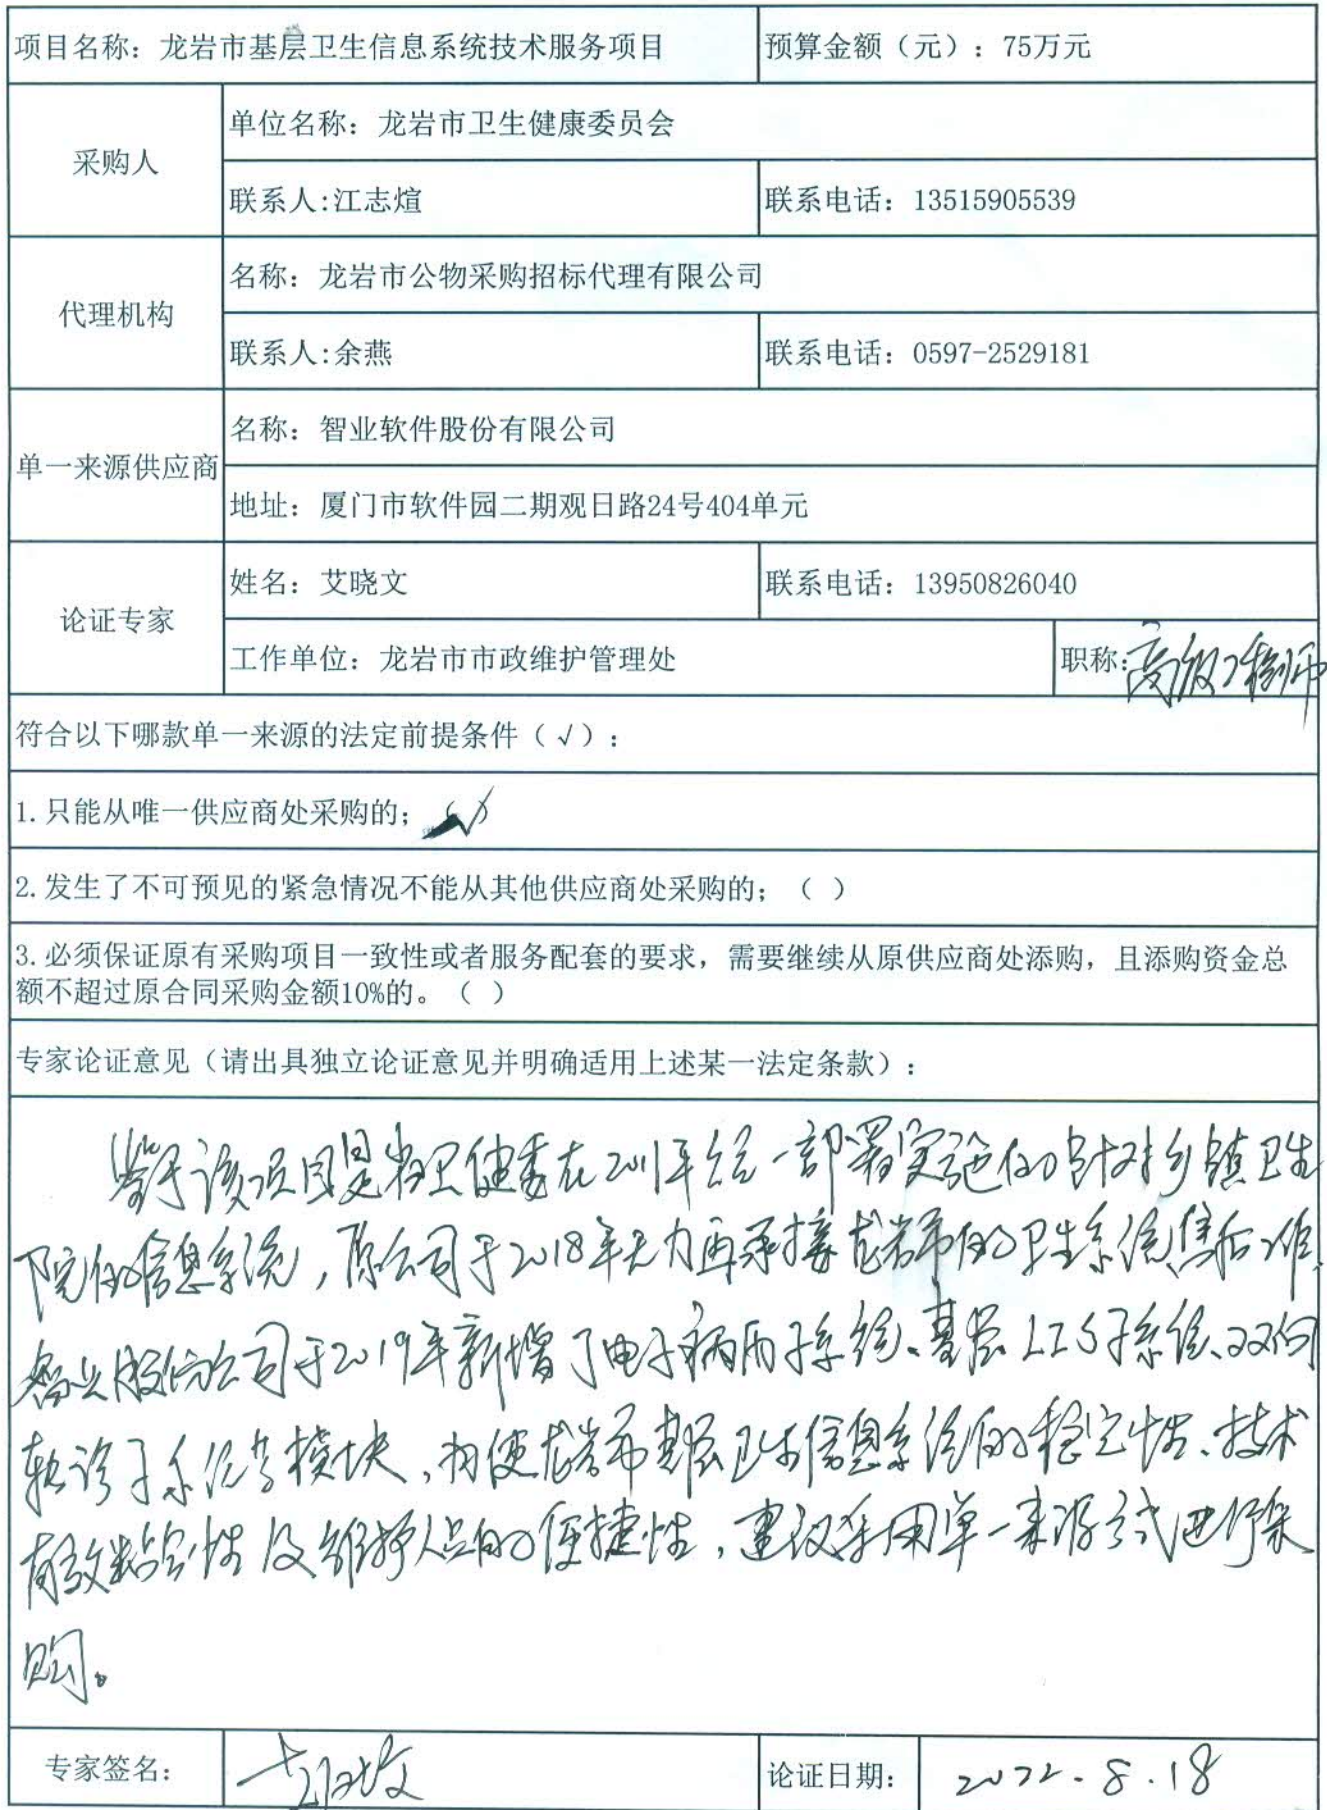 项目名称：龙岩市基层卫生信息系统技术服务项目
预算金额（元）：75万元
采购人
单位名称：龙岩市卫生健康委员会
联系人:江志煊
联系电话：13515905539
代理机构
名称：龙岩市公物采购招标代理有限公司
联系人:余燕
联系电话：0597-2529181
单一来源供应商
名称：智业软件股份有限公司
地址：厦门市软件园二期观日路24号404单元
论证专家
姓名：艾晓文
联系电话：13950826040
工作单位：龙岩市市政维护管理处
职称:高级工程师
符合以下哪款单一来源的法定前提条件（√）：
1.只能从唯一供应商处采购的；（√）
2.发生了不可预见的紧急情况不能从其他供应商处采购的；（ ）
3.必须保证原有采购项目一致性或者服务配套的要求，需要继续从原供应商处添购，且添购资金总
额不超过原合同采购金额10%的。（ ）
专家论证意见（请出具独立论证意见并明确适用上述某一法定条款）：
鉴于该项目是省卫健委在2011年统一部署实施的针对乡镇卫生
院的信息系统，原公司于2018年无力再承接龙岩市的卫生系统售后工作，
智业股份公司于2019年新增了电子病历子系统、基层LIS子系统、双向
转诊子系统等模块，为使龙岩市基层卫生信息系统的稳定性、技术
有效性及维护人员的便捷性，建议采用单一来源方式进行采
购。
专家签名：
艾晓文
论证日期：
2022.8.18